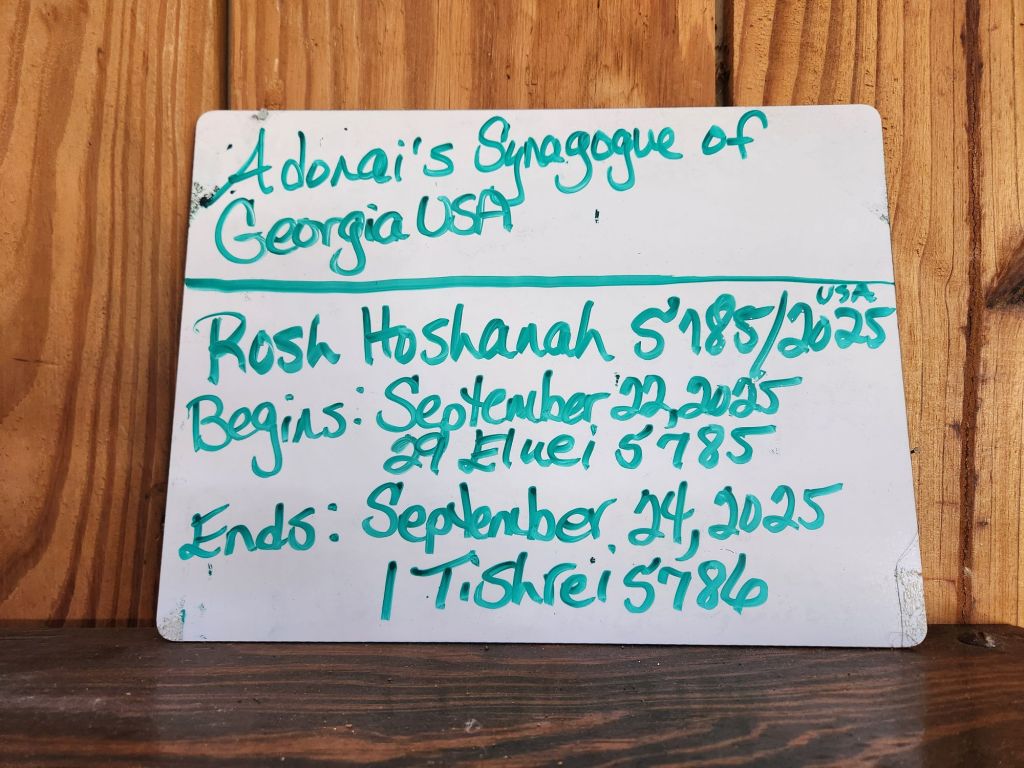 Adonai's Synagogue of
Georgia USA
Rosh Hoshanah 5785/2025 USA
Begins: September 22, 2025
29 Eluei 5785
Ends: September 24, 2025
1 Tishrei 5786